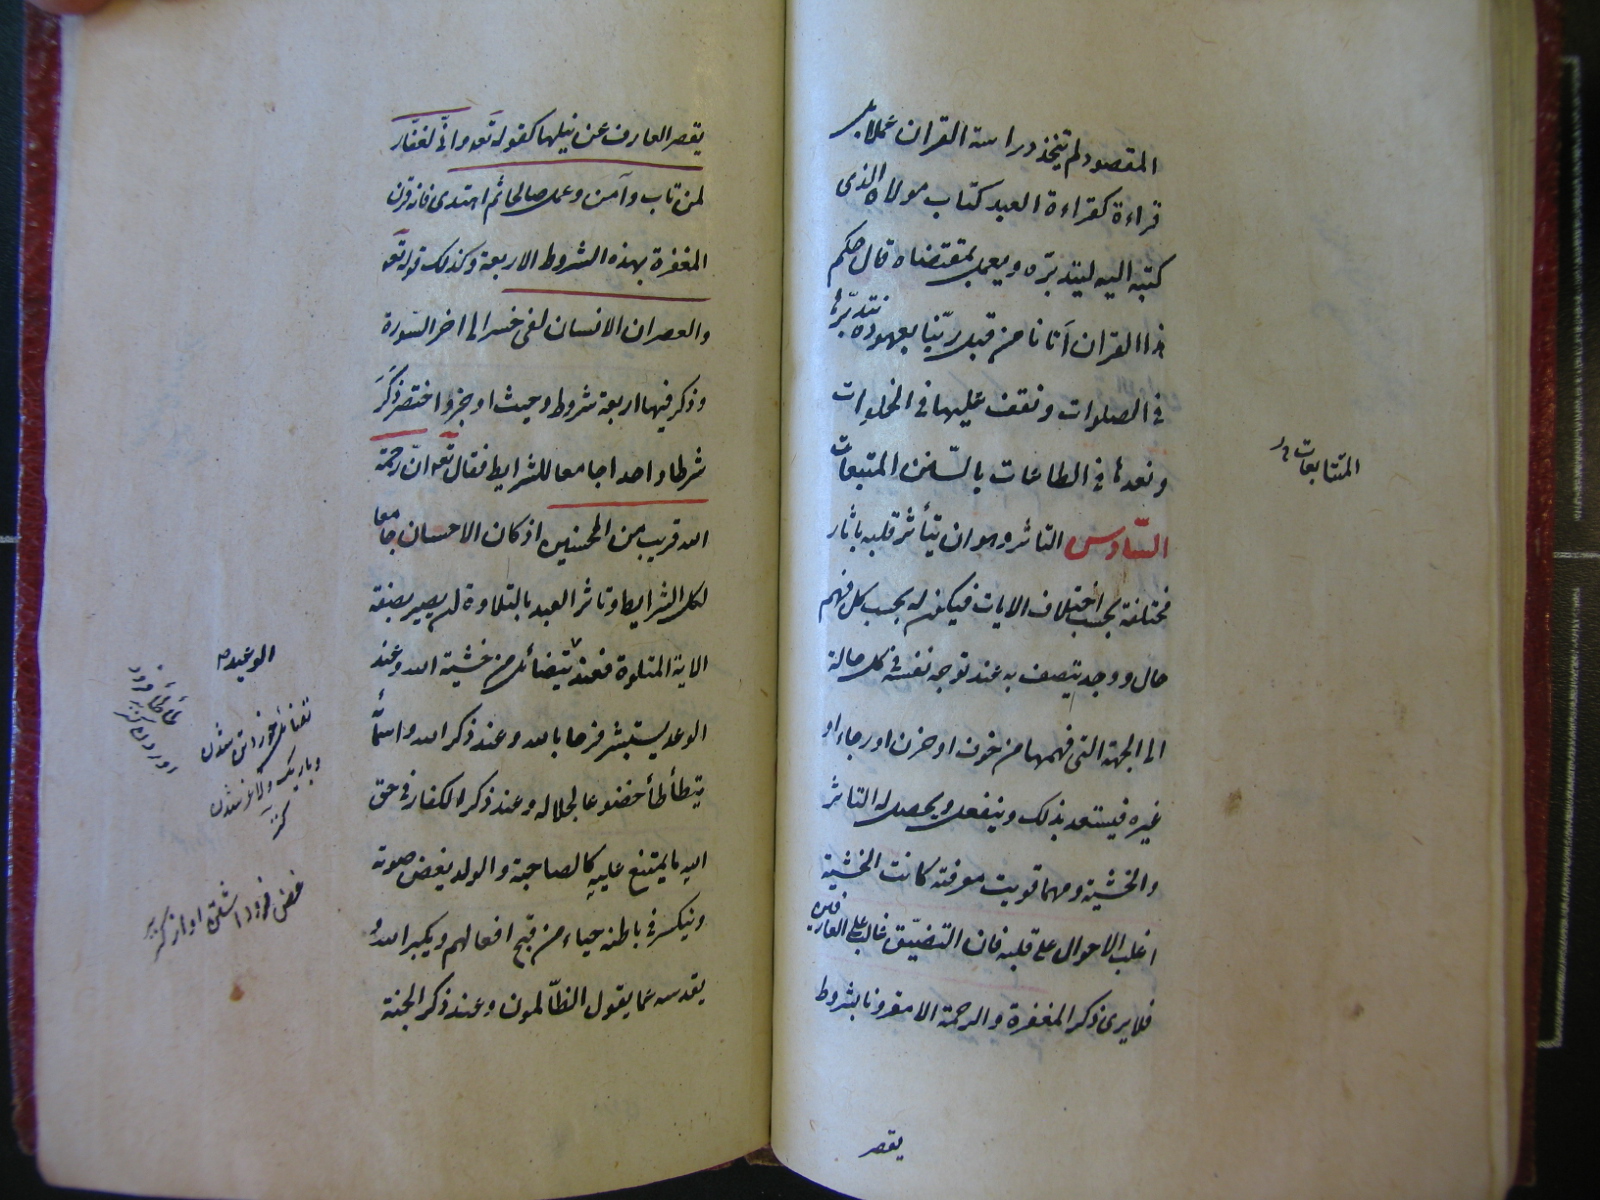 المقصود لم يتخذ دراسة القران عملا بل
قراءة كقراءة العبد كتاب مولاه الذى
كتبه اليه ليتدبّره ويعمل بمقتضاه قال حكيم
هذا القران أتانا من قبل ربّنا بعهوده نتدبّرها
فى الصلوات ونقف عليها فى الخلوات
ونعدها فى الطاعات بالسّنن المتبعات
المتتابعات
السّادس التاثر وهو ان يتأثر قلبه باثار
مختلفة بحسب اختلاف الايات فيكون له بحسب كل فهم
حال ووجد يتصف به عند توجه نفسه فى كل حالة
الى الجهة التى فهمها من خوف او حزن او رجاء او
غيره فيستعد بذلك وينفعل ويحصل له التاثر
والخشية ومهما قويت معرفته كانت الخشية
اغلب الاحوال على قلبه فان التضيّق غالب على العارفين
فلا يرى ذكر المغفرة والرحمة الا مقرونا بشروط
يقصر
يقصر العارف عن نيلها كقوله تعه وانّى لغفّار
لمن تاب وآمن وعمل صالحا ثم اهتدى فانه قرن
المغفرة بهذه الشروط الاربعة وكذلك قوله تعه
والعصر ان الانسان لفى خسر الى اخر السّورة
وذكر فيها اربعة شروط وحيث اوجز واختصر ذكر
شرطا واحدا جامعا للشرايط فقال تعه انّ رحمة
الله قريب من المحسنين اذ كان الاحسان جامعا
لكل الشرايط وتاثر العبد بالتلاوة ان يصير بصفة
الاية المتلوة فعند يتضائل من خشية الله وعند
الوعيد
الوعد يستبشر فرحا بالله وعند ذكر الله واسمائه
يتطأطأ خضوعا لجلاله وعند ذكر الكفار فى حق
الله ما يمتنع عليه كالصاحبة والولد يغض صوته
وينكسر فى باطنه حياء من قبح افعالهم ويكبر الله و
يقدسه عما يقول الظّالمون وعند ذكر الجنة
شدن
وباريك ولاغر شدن
كنز
غض فرود اشتن اواز كنز